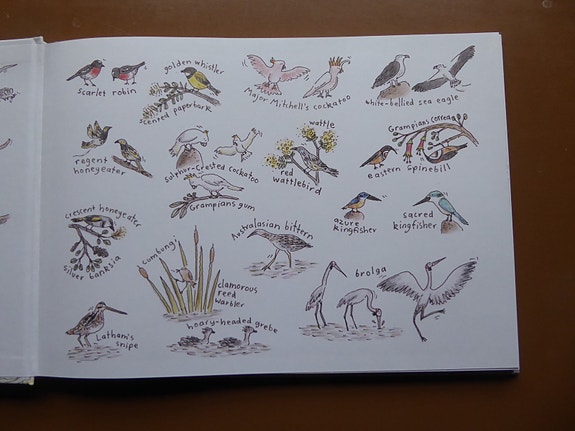 scarlet robin
golden whistler
scented paperbark
Major Mitchell's cockatoo
white-bellied sea eagle
regent
honeyeater
sulphur-crested cockatoo
Grampians gum
wattle
red
wattlebird
Grampians correa
eastern spinebill
azure
kingfisher
sacred
kingfisher
crescent honeyeater
silver banksia
cumbungi
clamorous
reed
warbler
Australasian bittern
brolga
Latham's
snipe
hoary-headed grebe